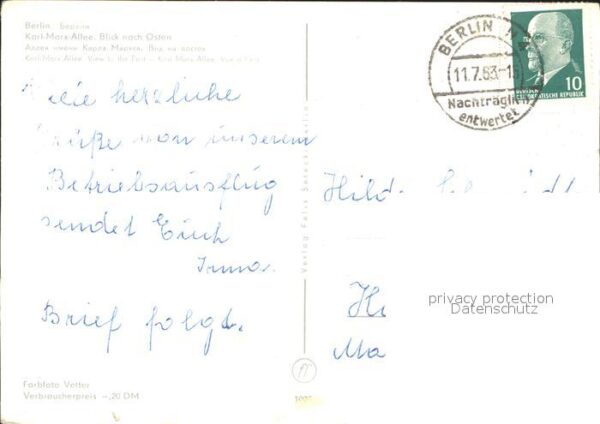 Berlin Берлин
Karl-Marx-Allee, Blick nach Osten
Аллея имени Карла Маркса, Вид на восток
Karl-Marx-Allee, View to the East - Karl-Marx-Allee, Vue à l'est
Viele herzliche
Grüße von unserem
Betriebsausflug
sendet Euch
Irma.
Brief folgt.
Farbfoto Vetter
Verbraucherpreis -,20 DM
Verlag Felix Setecki, Berlin
BERLIN
11.7.63-1
Nachträglich
entwertet
10
DEUTSCHE
DEMOKRATISCHE REPUBLIK
Hild
Hi
Ma
privacy protection
Datenschutz